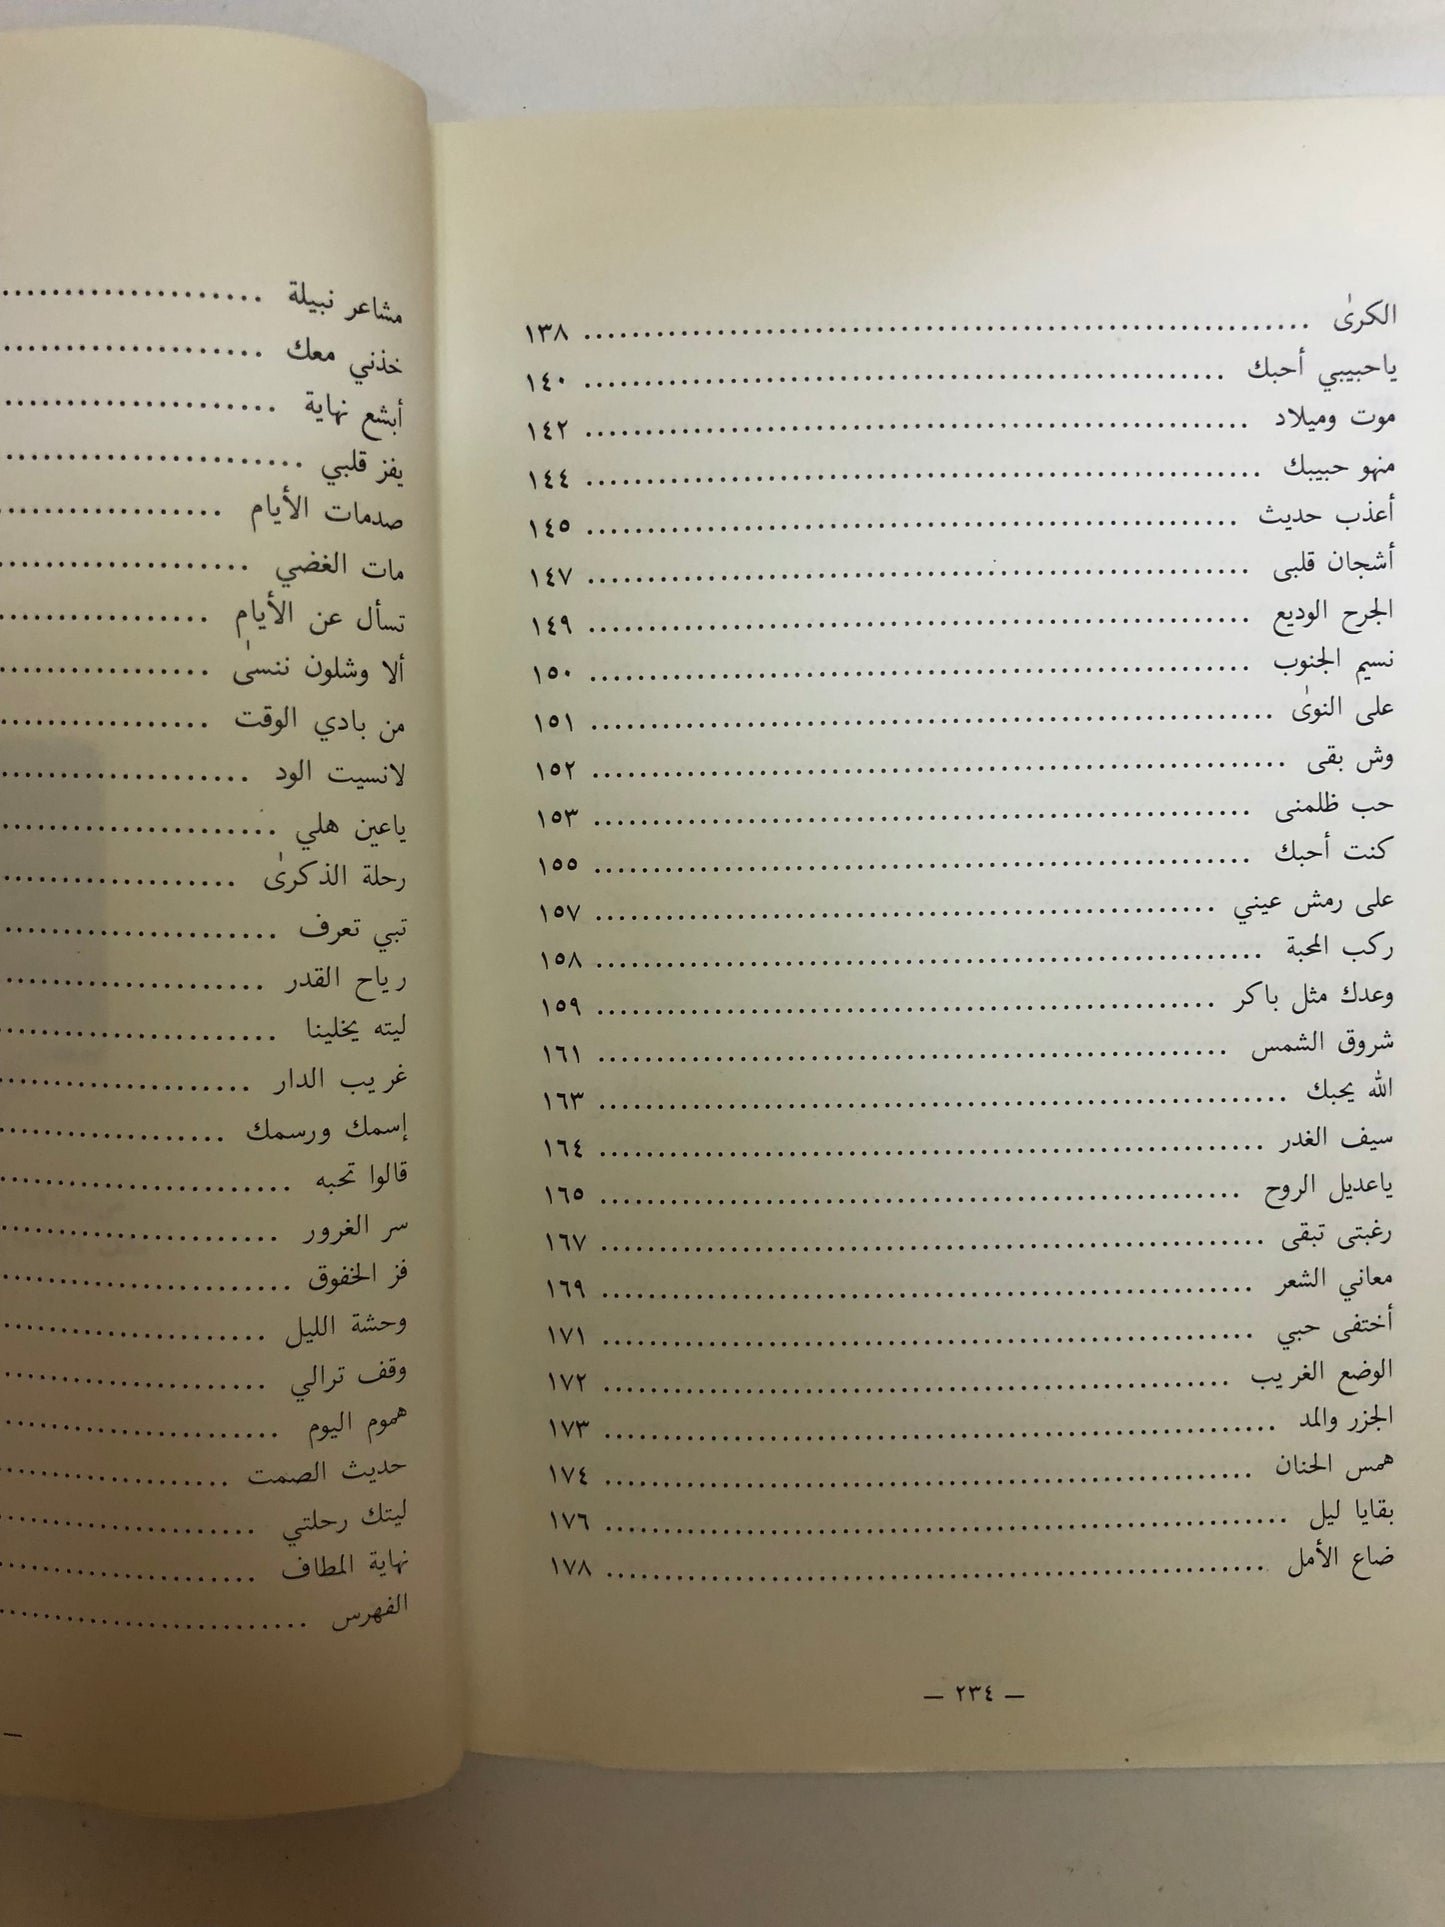 الكرىٰ ........ ١٣٨
ياحبيبي أحبك ........ ١٤٠
موت وميلاد ........ ١٤٢
منهو حبيبك ........ ١٤٤
أعذب حديث ........ ١٤٥
أشجان قلبى ........ ١٤٧
الجرح الوديع ........ ١٤٩
نسيم الجنوب ........ ١٥٠
على النوىٰ ........ ١٥١
وش بقى ........ ١٥٢
حب ظلمنى ........ ١٥٣
كنت أحبك ........ ١٥٥
على رمش عيني ........ ١٥٧
ركب المحبة ........ ١٥٨
وعدك مثل باكر ........ ١٥٩
شروق الشمس ........ ١٦١
الله يحبك ........ ١٦٣
سيف الغدر ........ ١٦٤
ياعديل الروح ........ ١٦٥
رغبتى تبقى ........ ١٦٧
معاني الشعر ........ ١٦٩
أختفى حبي ........ ١٧١
الوضع الغريب ........ ١٧٢
الجزر والمد ........ ١٧٣
همس الحنان ........ ١٧٤
بقايا ليل ........ ١٧٦
ضاع الأمل ........ ١٧٨
— ٢٣٤ —
مشاعر نبيلة ........
خذني معك ........
أبشع نهاية ........
يفز قلبي ........
صدمات الأيام ........
مات الغضي ........
تسأل عن الأيام ........
ألا وشلون ننسىٰ ........
من بادي الوقت ........
لانسيت الود ........
ياعين هلي ........
رحلة الذكرىٰ ........
تبي تعرف ........
رياح القدر ........
ليته يخلينا ........
غريب الدار ........
إسمك ورسمك ........
قالوا تحبه ........
سر الغرور ........
فز الخفوق ........
وحشة الليل ........
وقف ترالي ........
هموم اليوم ........
حديث الصمت ........
ليتك رحلتي ........
نهاية المطاف ........
الفهرس ........
—